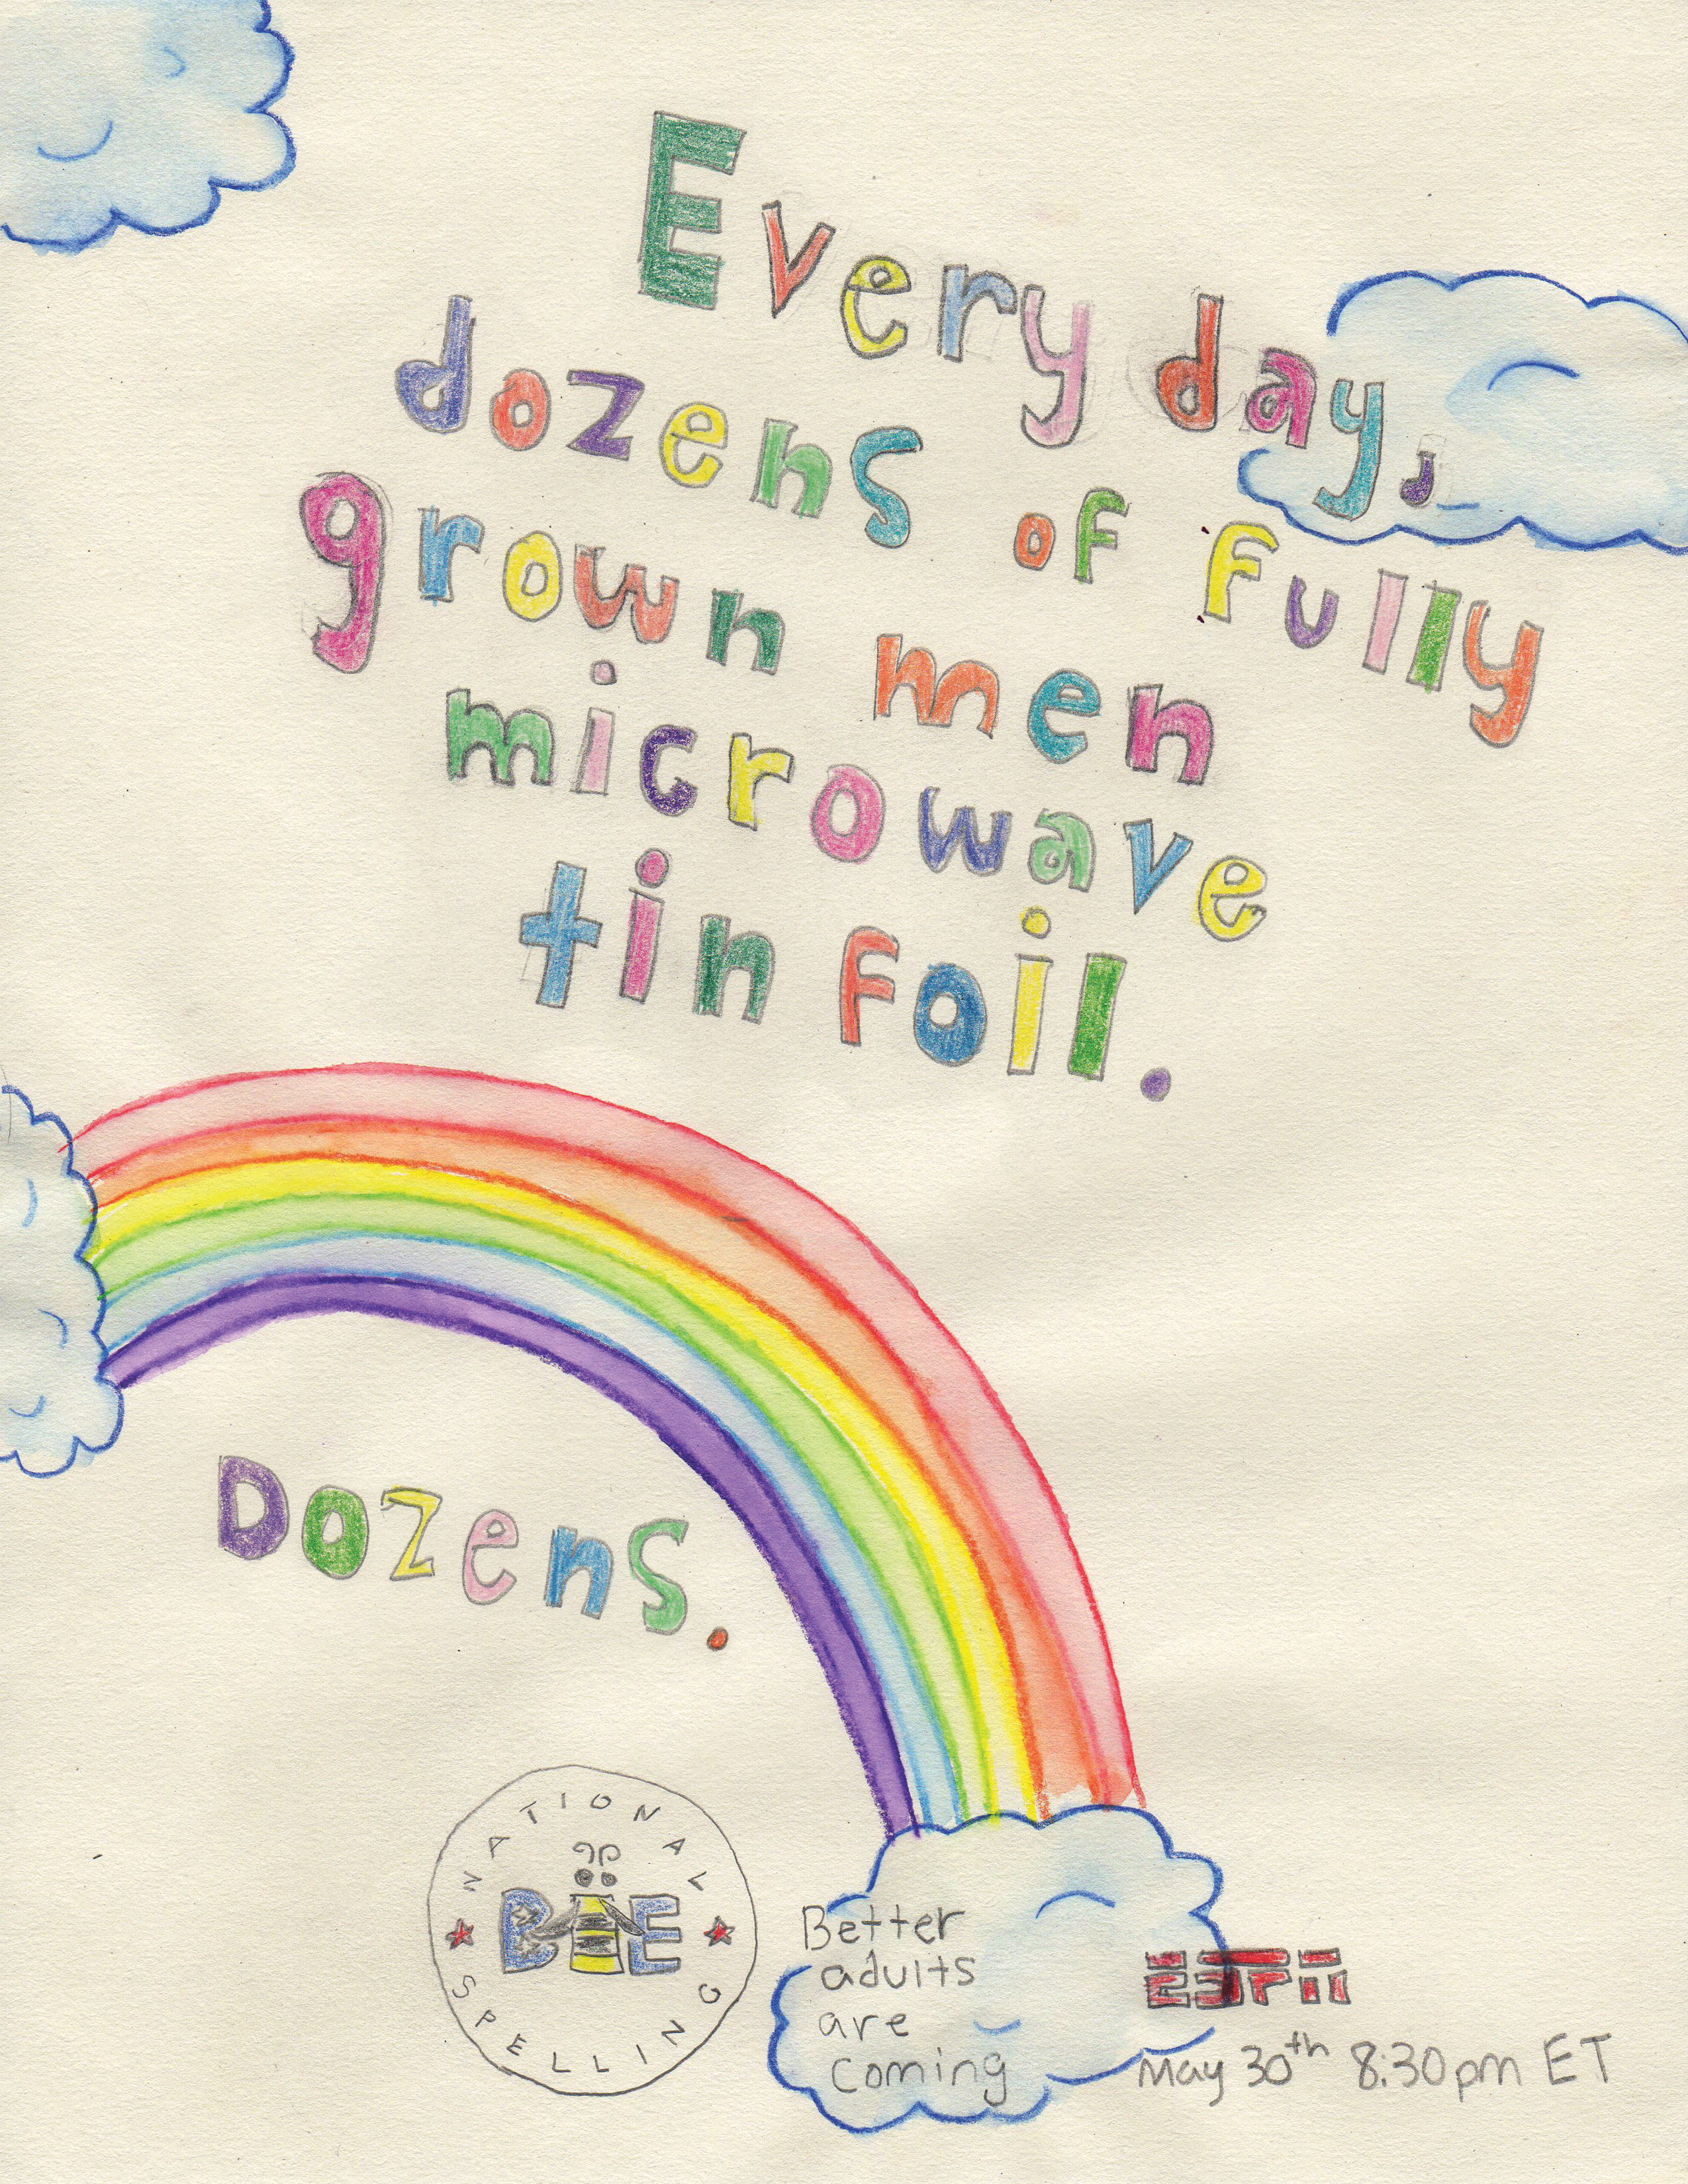 Every day,
dozens of fully
grown men
microwave
tin foil.
Dozens.
NATIONAL
BEE
SPELLING
Better
adults
are
coming
ESPN
May 30th 8:30pm ET